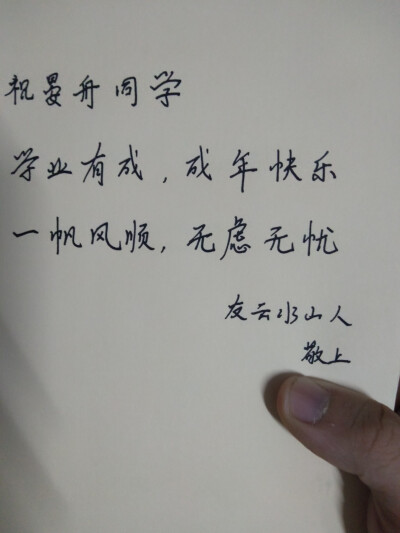 祝晏舟同学
学业有成，成年快乐
一帆风顺，无虑无忧
友云水山人
敬上